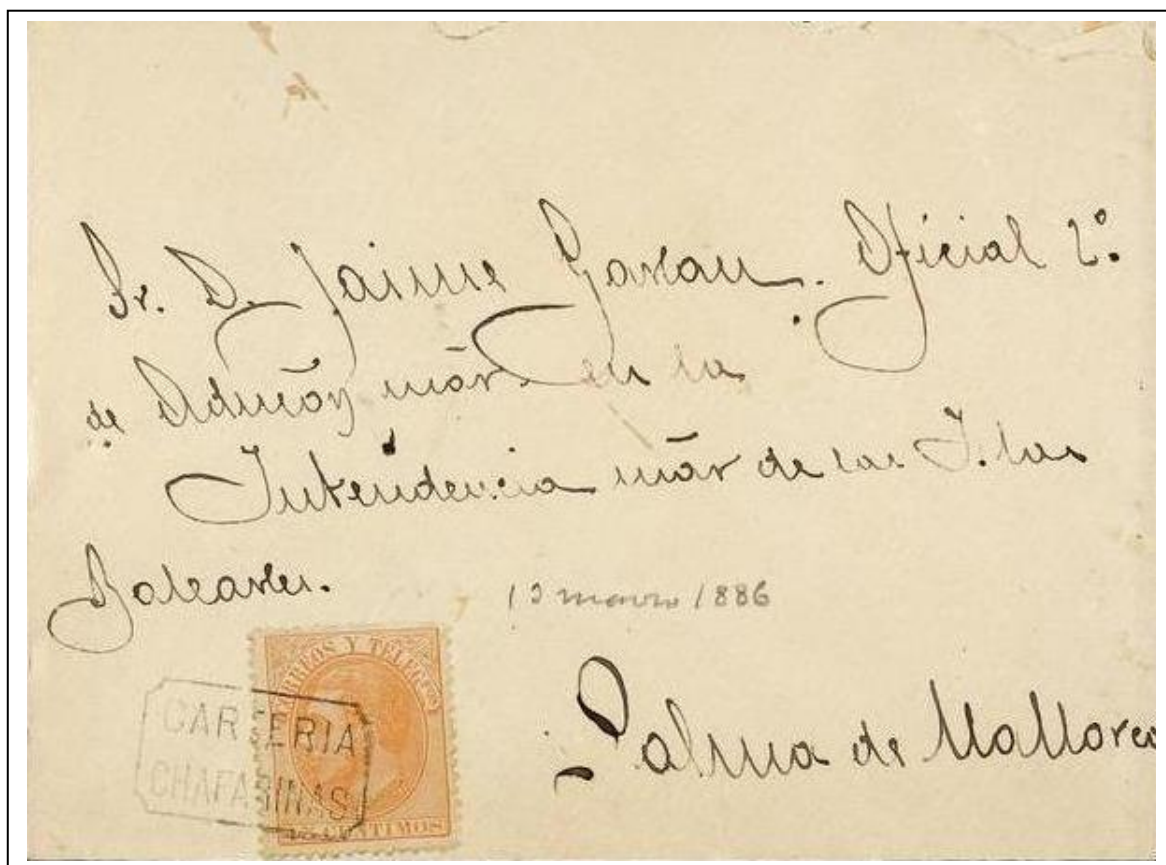 Sr. D. Jaime Garau. Oficial 2º
de Admōn mār en la
Intendencia mār de las Islas
Baleares.
13 marzo 1886
CORREOS Y TELEGFOS
CARTERIA
CHAFARINAS
CENTIMOS
Palma de Mallorca